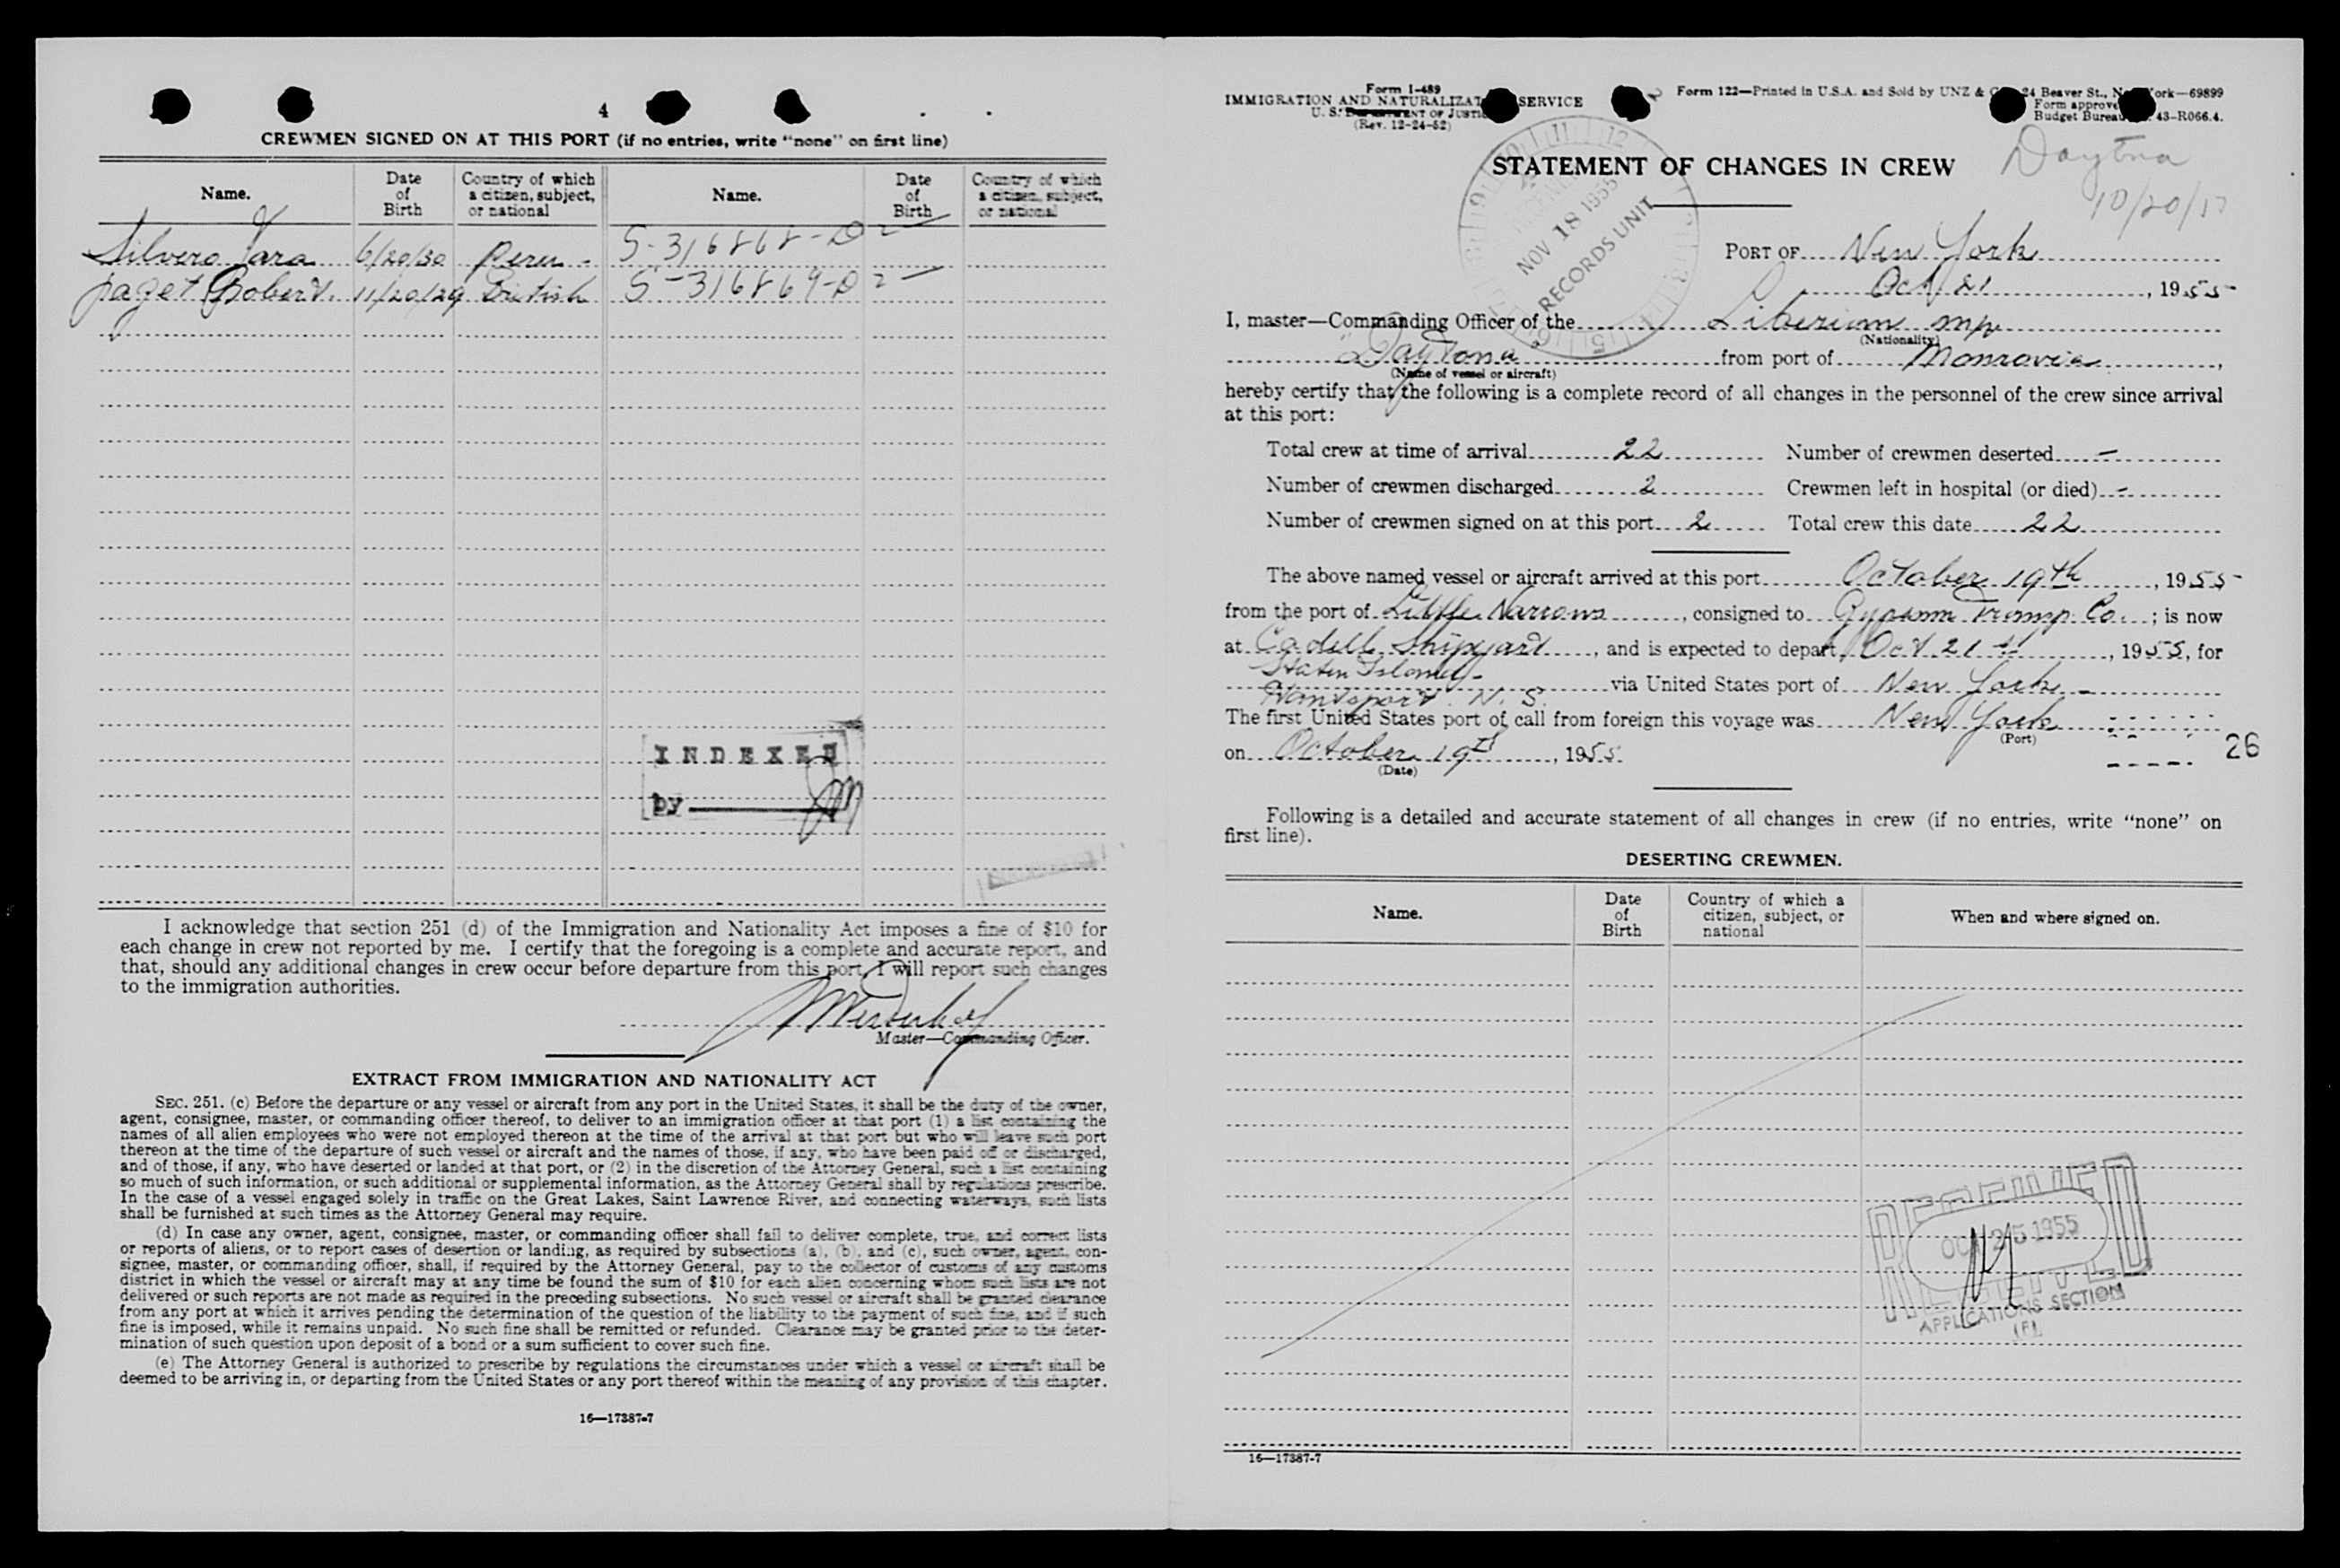 4
CREWMEN SIGNED ON AT THIS PORT (if no entries, write "none" on first line)
Name. Date of Birth Country of which a citizen, subject, or national Name. Date of Birth Country of which a citizen, subject, or national
Silvero Jara 6/20/30 Peru - S-316868-D2 —
paget Robert. 11/20/29 British S-316869-D2 —
INDEXED
by
I acknowledge that section 251 (d) of the Immigration and Nationality Act imposes a fine of $10 for
each change in crew not reported by me. I certify that the foregoing is a complete and accurate report, and
that, should any additional changes in crew occur before departure from this port, I will report such changes
to the immigration authorities.
Master—Commanding Officer.
EXTRACT FROM IMMIGRATION AND NATIONALITY ACT
SEC. 251. (c) Before the departure or any vessel or aircraft from any port in the United States, it shall be the duty of the owner,
agent, consignee, master, or commanding officer thereof, to deliver to an immigration officer at that port (1) a list containing the
names of all alien employees who were not employed thereon at the time of the arrival at that port but who will leave such port
thereon at the time of the departure of such vessel or aircraft and the names of those, if any, who have been paid off or discharged,
and of those, if any, who have deserted or landed at that port, or (2) in the discretion of the Attorney General, such a list containing
so much of such information, or such additional or supplemental information, as the Attorney General shall by regulations prescribe.
In the case of a vessel engaged solely in traffic on the Great Lakes, Saint Lawrence River, and connecting waterways, such lists
shall be furnished at such times as the Attorney General may require.
(d) In case any owner, agent, consignee, master, or commanding officer shall fail to deliver complete, true, and correct lists
or reports of aliens, or to report cases of desertion or landing, as required by subsections (a), (b), and (c), such owner, agent, con-
signee, master, or commanding officer, shall, if required by the Attorney General, pay to the collector of customs of any customs
district in which the vessel or aircraft may at any time be found the sum of $10 for each alien concerning whom such lists are not
delivered or such reports are not made as required in the preceding subsections. No such vessel or aircraft shall be granted clearance
from any port at which it arrives pending the determination of the question of the liability to the payment of such fine, and if such
fine is imposed, while it remains unpaid. No such fine shall be remitted or refunded. Clearance may be granted prior to the deter-
mination of such question upon deposit of a bond or a sum sufficient to cover such fine.
(e) The Attorney General is authorized to prescribe by regulations the circumstances under which a vessel or aircraft shall be
deemed to be arriving in, or departing from the United States or any port thereof within the meaning of any provision of this chapter.
16—17387-7
Form I-489
IMMIGRATION AND NATURALIZAT SERVICE
U. S. DEPARTMENT OF JUSTIC
(Rev. 12-24-52)
Form 122—Printed in U.S.A. and Sold by UNZ & C 24 Beaver St., N ork—69899
Form approve
Budget Bureau 43-R066.4.
Daytona
10/20/
STATEMENT OF CHANGES IN CREW
NOV 18 1955
RECORDS UNIT
PORT OF New York
Oct 21, 1955
I, master—Commanding Officer of the Liberian
(Nationality)
"Daytona" from port of Monrovia,
(Name of vessel or aircraft)
hereby certify that the following is a complete record of all changes in the personnel of the crew since arrival
at this port:
Total crew at time of arrival 22 Number of crewmen deserted —
Number of crewmen discharged 2 Crewmen left in hospital (or died) -
Number of crewmen signed on at this port 2 Total crew this date 22
The above named vessel or aircraft arrived at this port October 19th, 1955
from the port of Little Narrows, consigned to Gypsum Transp. Co.; is now
at Cadell Shipyard, and is expected to depart Oct 21st, 1955, for
Staten Island -
Hantsport N. S. via United States port of New York -
The first United States port of call from foreign this voyage was New York
(Port)
on October 19th, 1955
(Date)
26
Following is a detailed and accurate statement of all changes in crew (if no entries, write "none" on
first line).
DESERTING CREWMEN.
Name. Date of Birth Country of which a citizen, subject, or national When and where signed on.
RECEIVED
OCT 25 1955
APPLICATIONS SECTION
16—17387-7